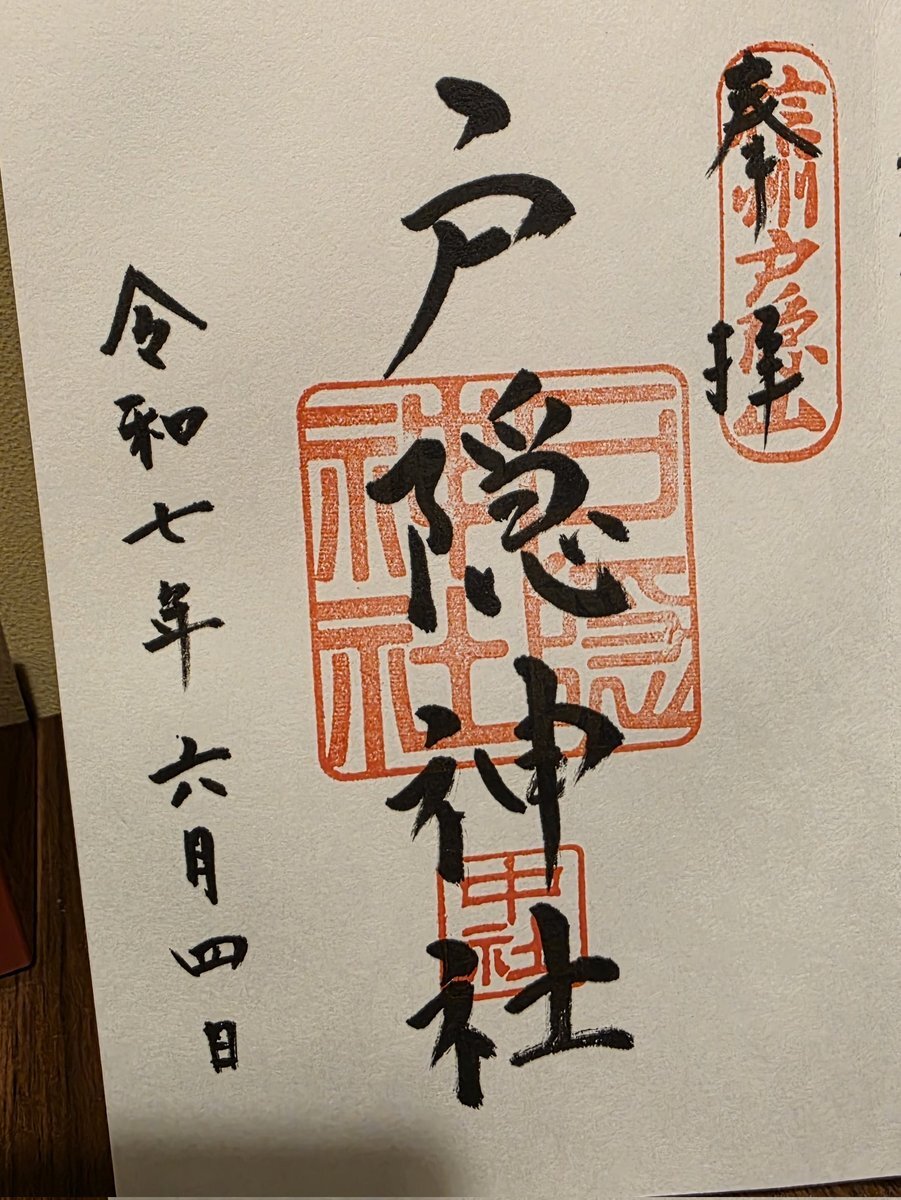 奉拝
信州戸隠山
戸隠神社
戸隠神社
中社
令和七年六月四日